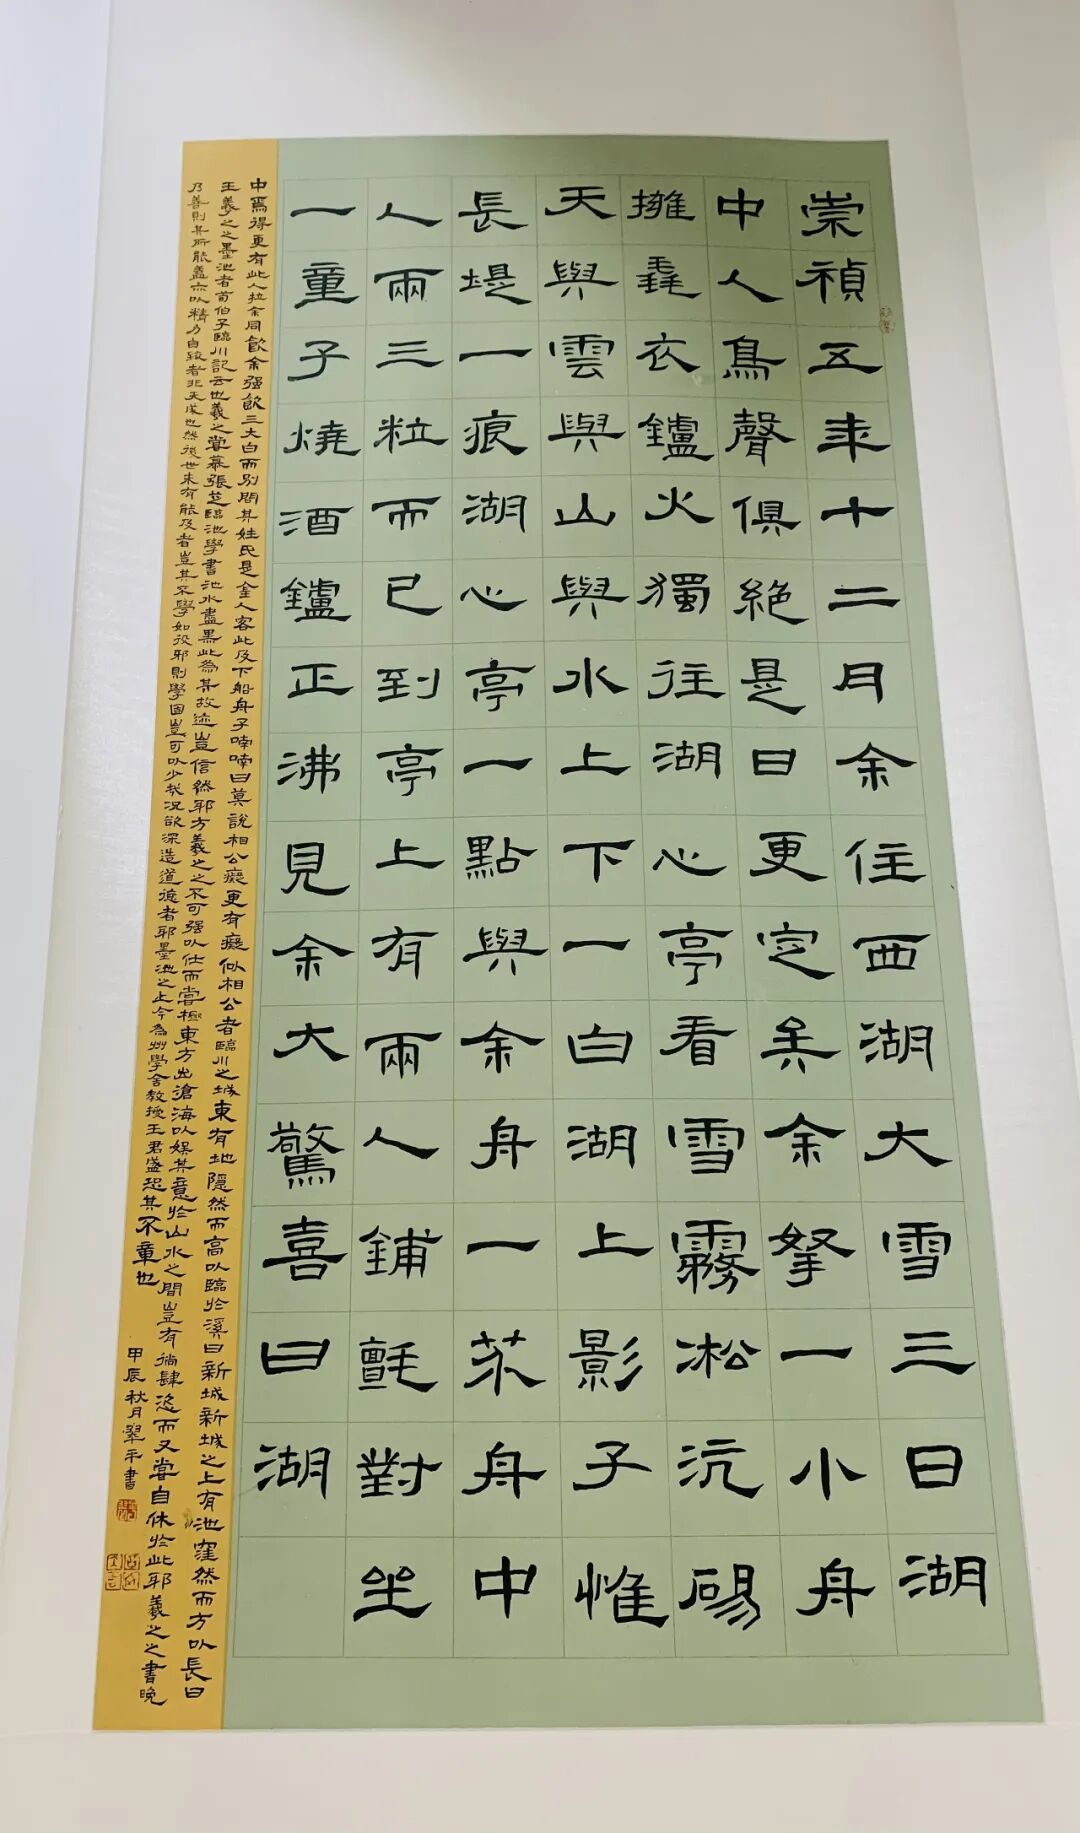 崇禎五年十二月余住西湖大雪三日湖
中人鳥聲俱絕是日更定矣余拏一小舟
擁毳衣鑪火獨往湖心亭看雪霧凇沆碭
天與雲與山與水上下一白湖上影子惟
長堤一痕湖心亭一點與余舟一芥舟中
人兩三粒而已到亭上有兩人鋪氈對坐
一童子燒酒鑪正沸見余大驚喜曰湖
中焉得更有此人拉余同飲余强飲三大白而別問其姓氏是金人客此及下船舟子喃喃曰莫說相公癡更有癡似相公者臨川之城東有地隱然而高以臨於溪曰新城新城之上有池窪然而方以長曰
王羲之之墨池者荀伯子臨川記云也羲之嘗慕張芝臨池學書池水盡黑此為其故迹豈信然耶方羲之之不可强以仕而嘗極東方出滄海以娛其意於山水之間豈有徜肆恣而又嘗自休於此耶羲之之書晚
乃善則其所能蓋亦以精力自致者非天成也然後世未有能及者豈其不學如彼邪則學固豈可以少哉況欲深造道德者耶墨池之上今為州學舍教授王君盛恐其不章也
甲辰秋月翠平書